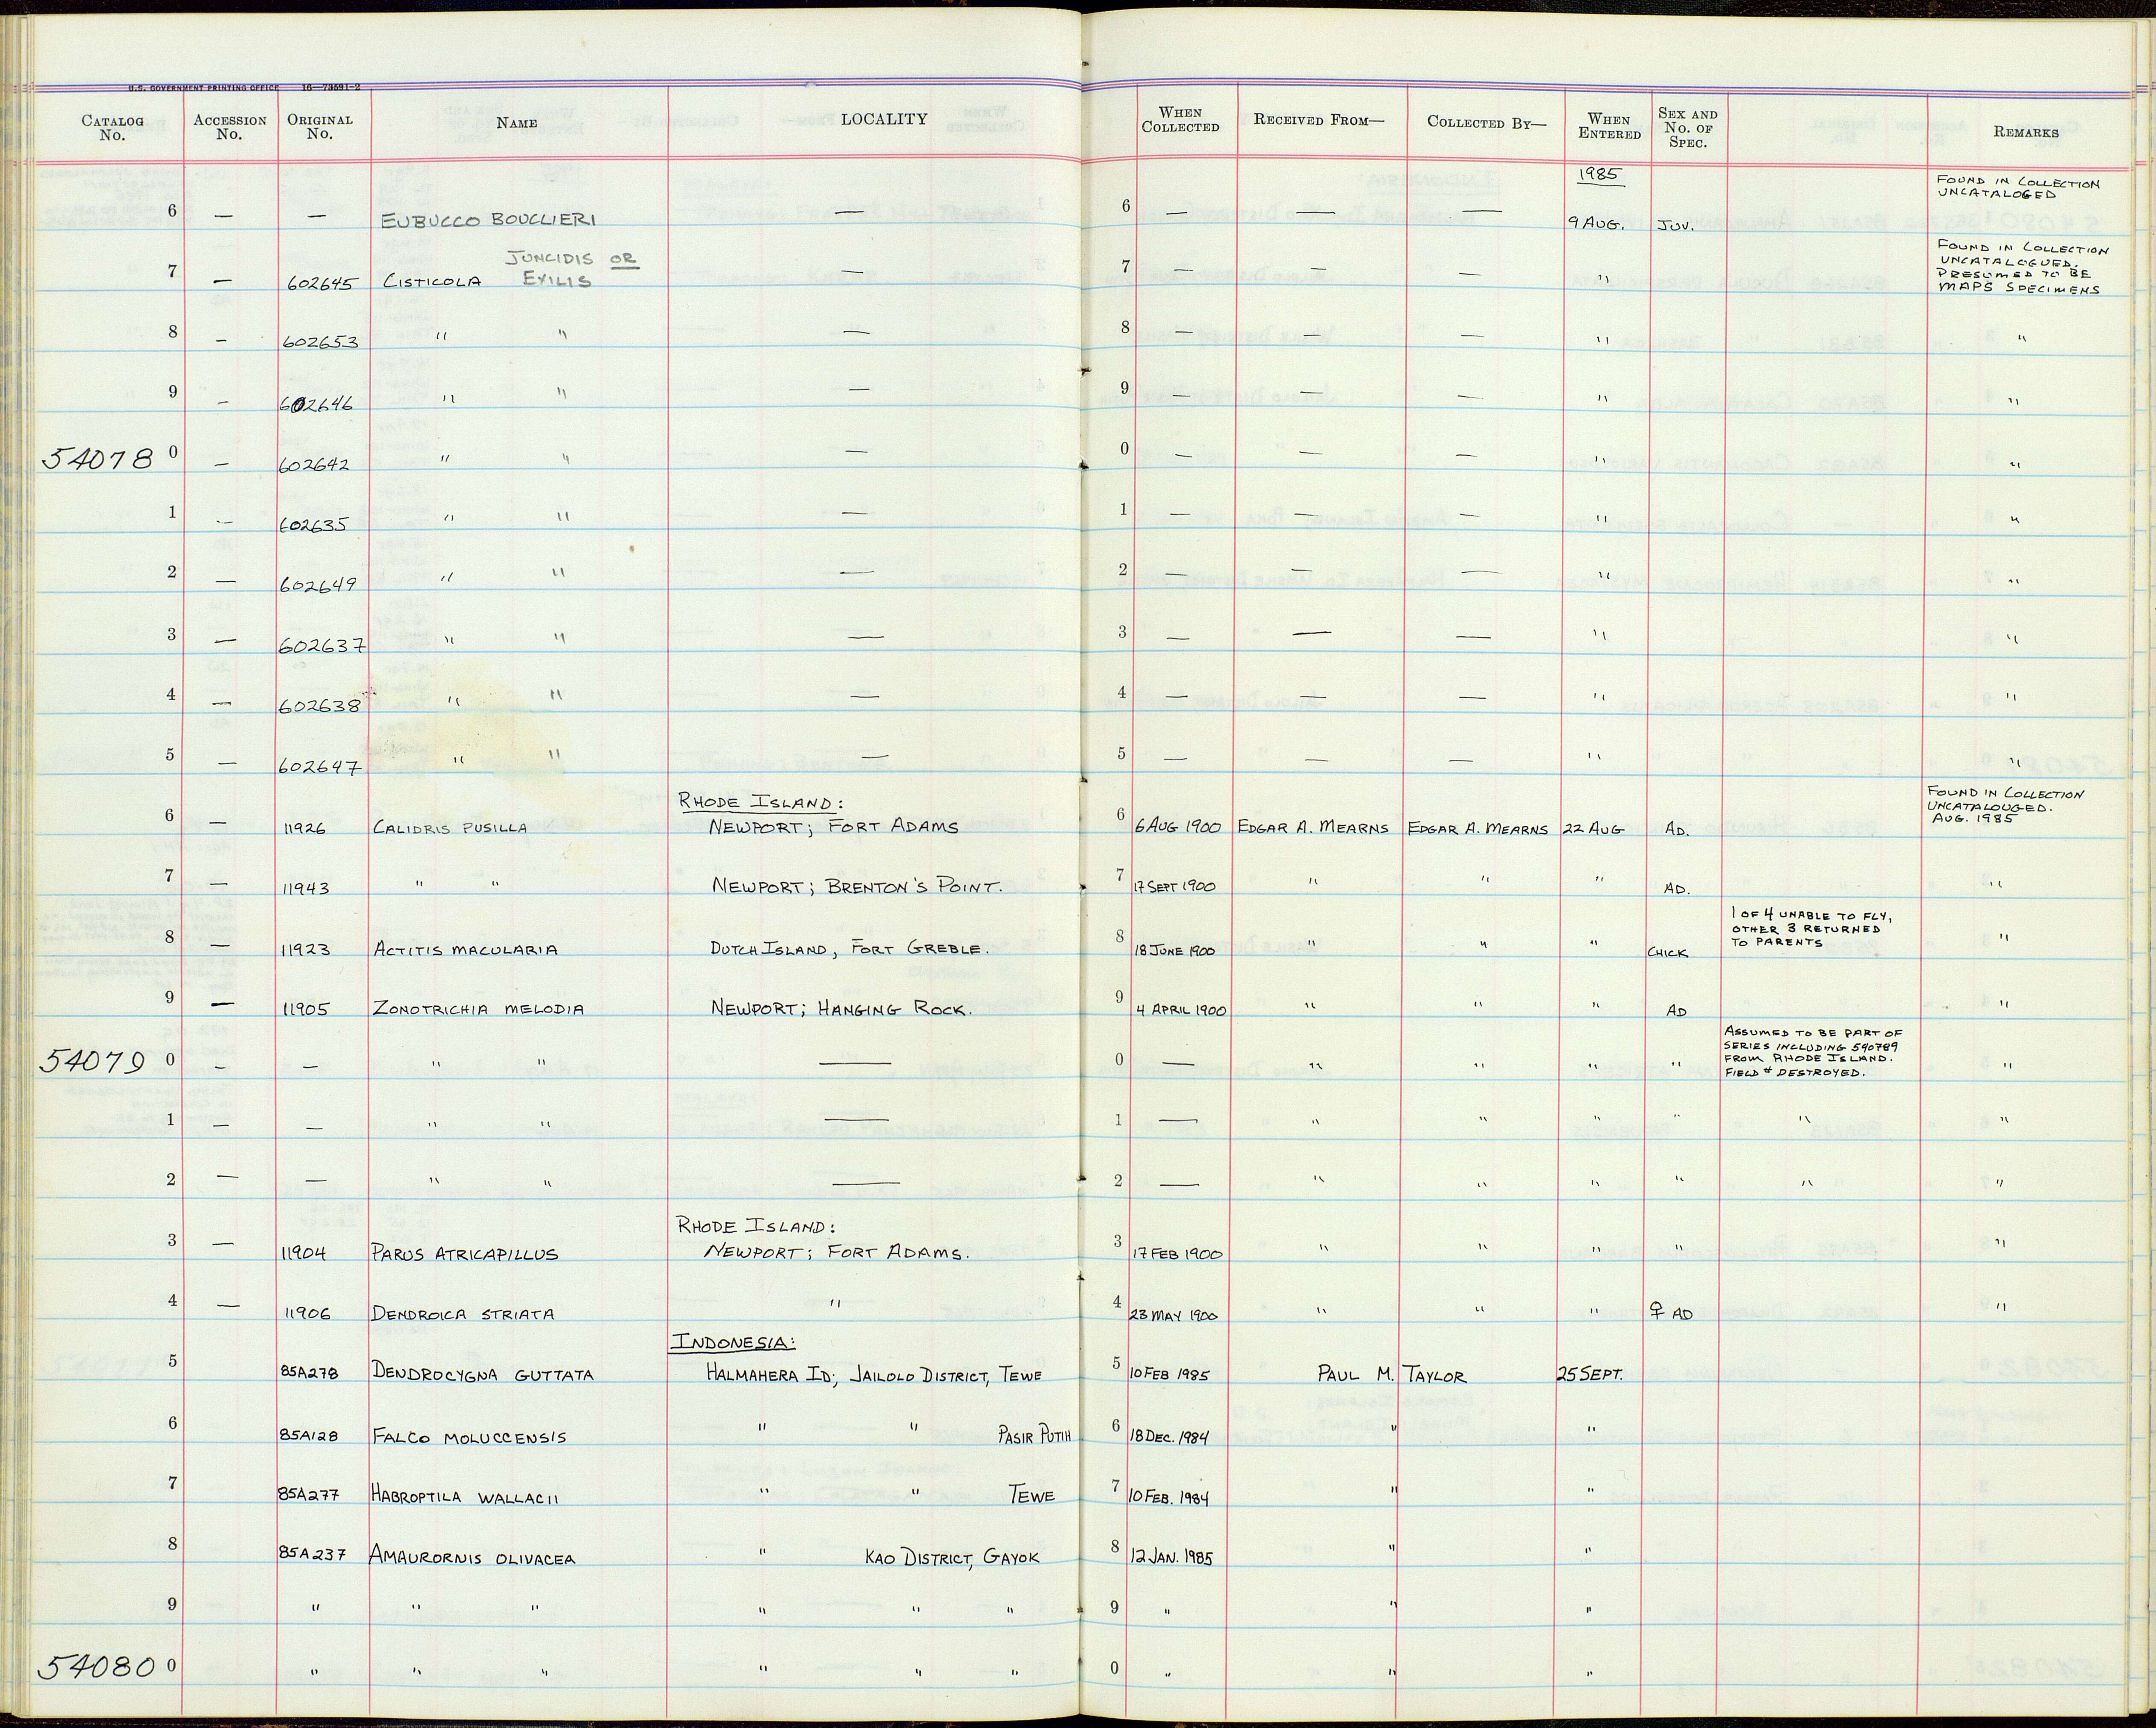 U.S. GOVERNMENT PRINTING OFFICE 16—73591-2
CATALOG No. ACCESSION No. ORIGINAL No. NAME LOCALITY WHEN COLLECTED RECEIVED FROM— COLLECTED BY— WHEN ENTERED SEX AND No. OF SPEC. REMARKS
1985 FOUND IN COLLECTION UNCATALOGED
6 — — EUBUCCO BOUCLIERI — 6 — — — 9 AUG. JUV.
JUNCIDIS OR FOUND IN COLLECTION UNCATALOGUED. PRESUMED TO BE MAPS SPECIMENS
7 — 602645 CISTICOLA EXILIS — 7 — — — "
8 — 602653 " " — 8 — — — " "
9 — 602646 " " — 9 — — — " "
54078 0 — 602642 " " — 0 — — — " "
1 — 602635 " " — 1 — — — " "
2 — 602649 " " — 2 — — — " "
3 — 602637 " " — 3 — — — " "
4 — 602638 " " — 4 — — — " "
5 — 602647 " " — 5 — — — " "
RHODE ISLAND: FOUND IN COLLECTION UNCATALOUGED. AUG. 1985
6 — 11926 CALIDRIS PUSILLA NEWPORT; FORT ADAMS 6 6 AUG 1900 EDGAR A. MEARNS EDGAR A. MEARNS 22 AUG AD.
7 — 11943 " " NEWPORT; BRENTON'S POINT. 7 17 SEPT 1900 " " " AD. "
8 — 11923 ACTITIS MACULARIA DUTCH ISLAND, FORT GREBLE. 8 18 JUNE 1900 " " " CHICK 1 OF 4 UNABLE TO FLY, OTHER 3 RETURNED TO PARENTS "
9 — 11905 ZONOTRICHIA MELODIA NEWPORT; HANGING ROCK. 9 4 APRIL 1900 " " " AD "
54079 0 — — " " — 0 — " " " " ASSUMED TO BE PART OF SERIES INCLUDING 540789 FROM RHODE ISLAND. FIELD # DESTROYED. "
1 — — " " — 1 — " " " " " "
2 — — " " — 2 — " " " " " "
RHODE ISLAND:
3 — 11904 PARUS ATRICAPILLUS NEWPORT; FORT ADAMS. 3 17 FEB 1900 " " " " "
4 — 11906 DENDROICA STRIATA " 4 23 MAY 1900 " " " ♀ AD "
INDONESIA:
5 85A278 DENDROCYGNA GUTTATA HALMAHERA ID; JAILOLO DISTRICT, TEWE 5 10 FEB 1985 PAUL M. TAYLOR 25 SEPT.
6 85A128 FALCO MOLUCCENSIS " " PASIR PUTIH 6 18 DEC. 1984 " "
7 85A277 HABROPTILA WALLACII " " TEWE 7 10 FEB. 1984 " "
8 85A237 AMAURORNIS OLIVACEA " KAO DISTRICT, GAYOK 8 12 JAN. 1985 " "
9 " " " " " " 9 " " "
54080 0 " " " " " " 0 " " "